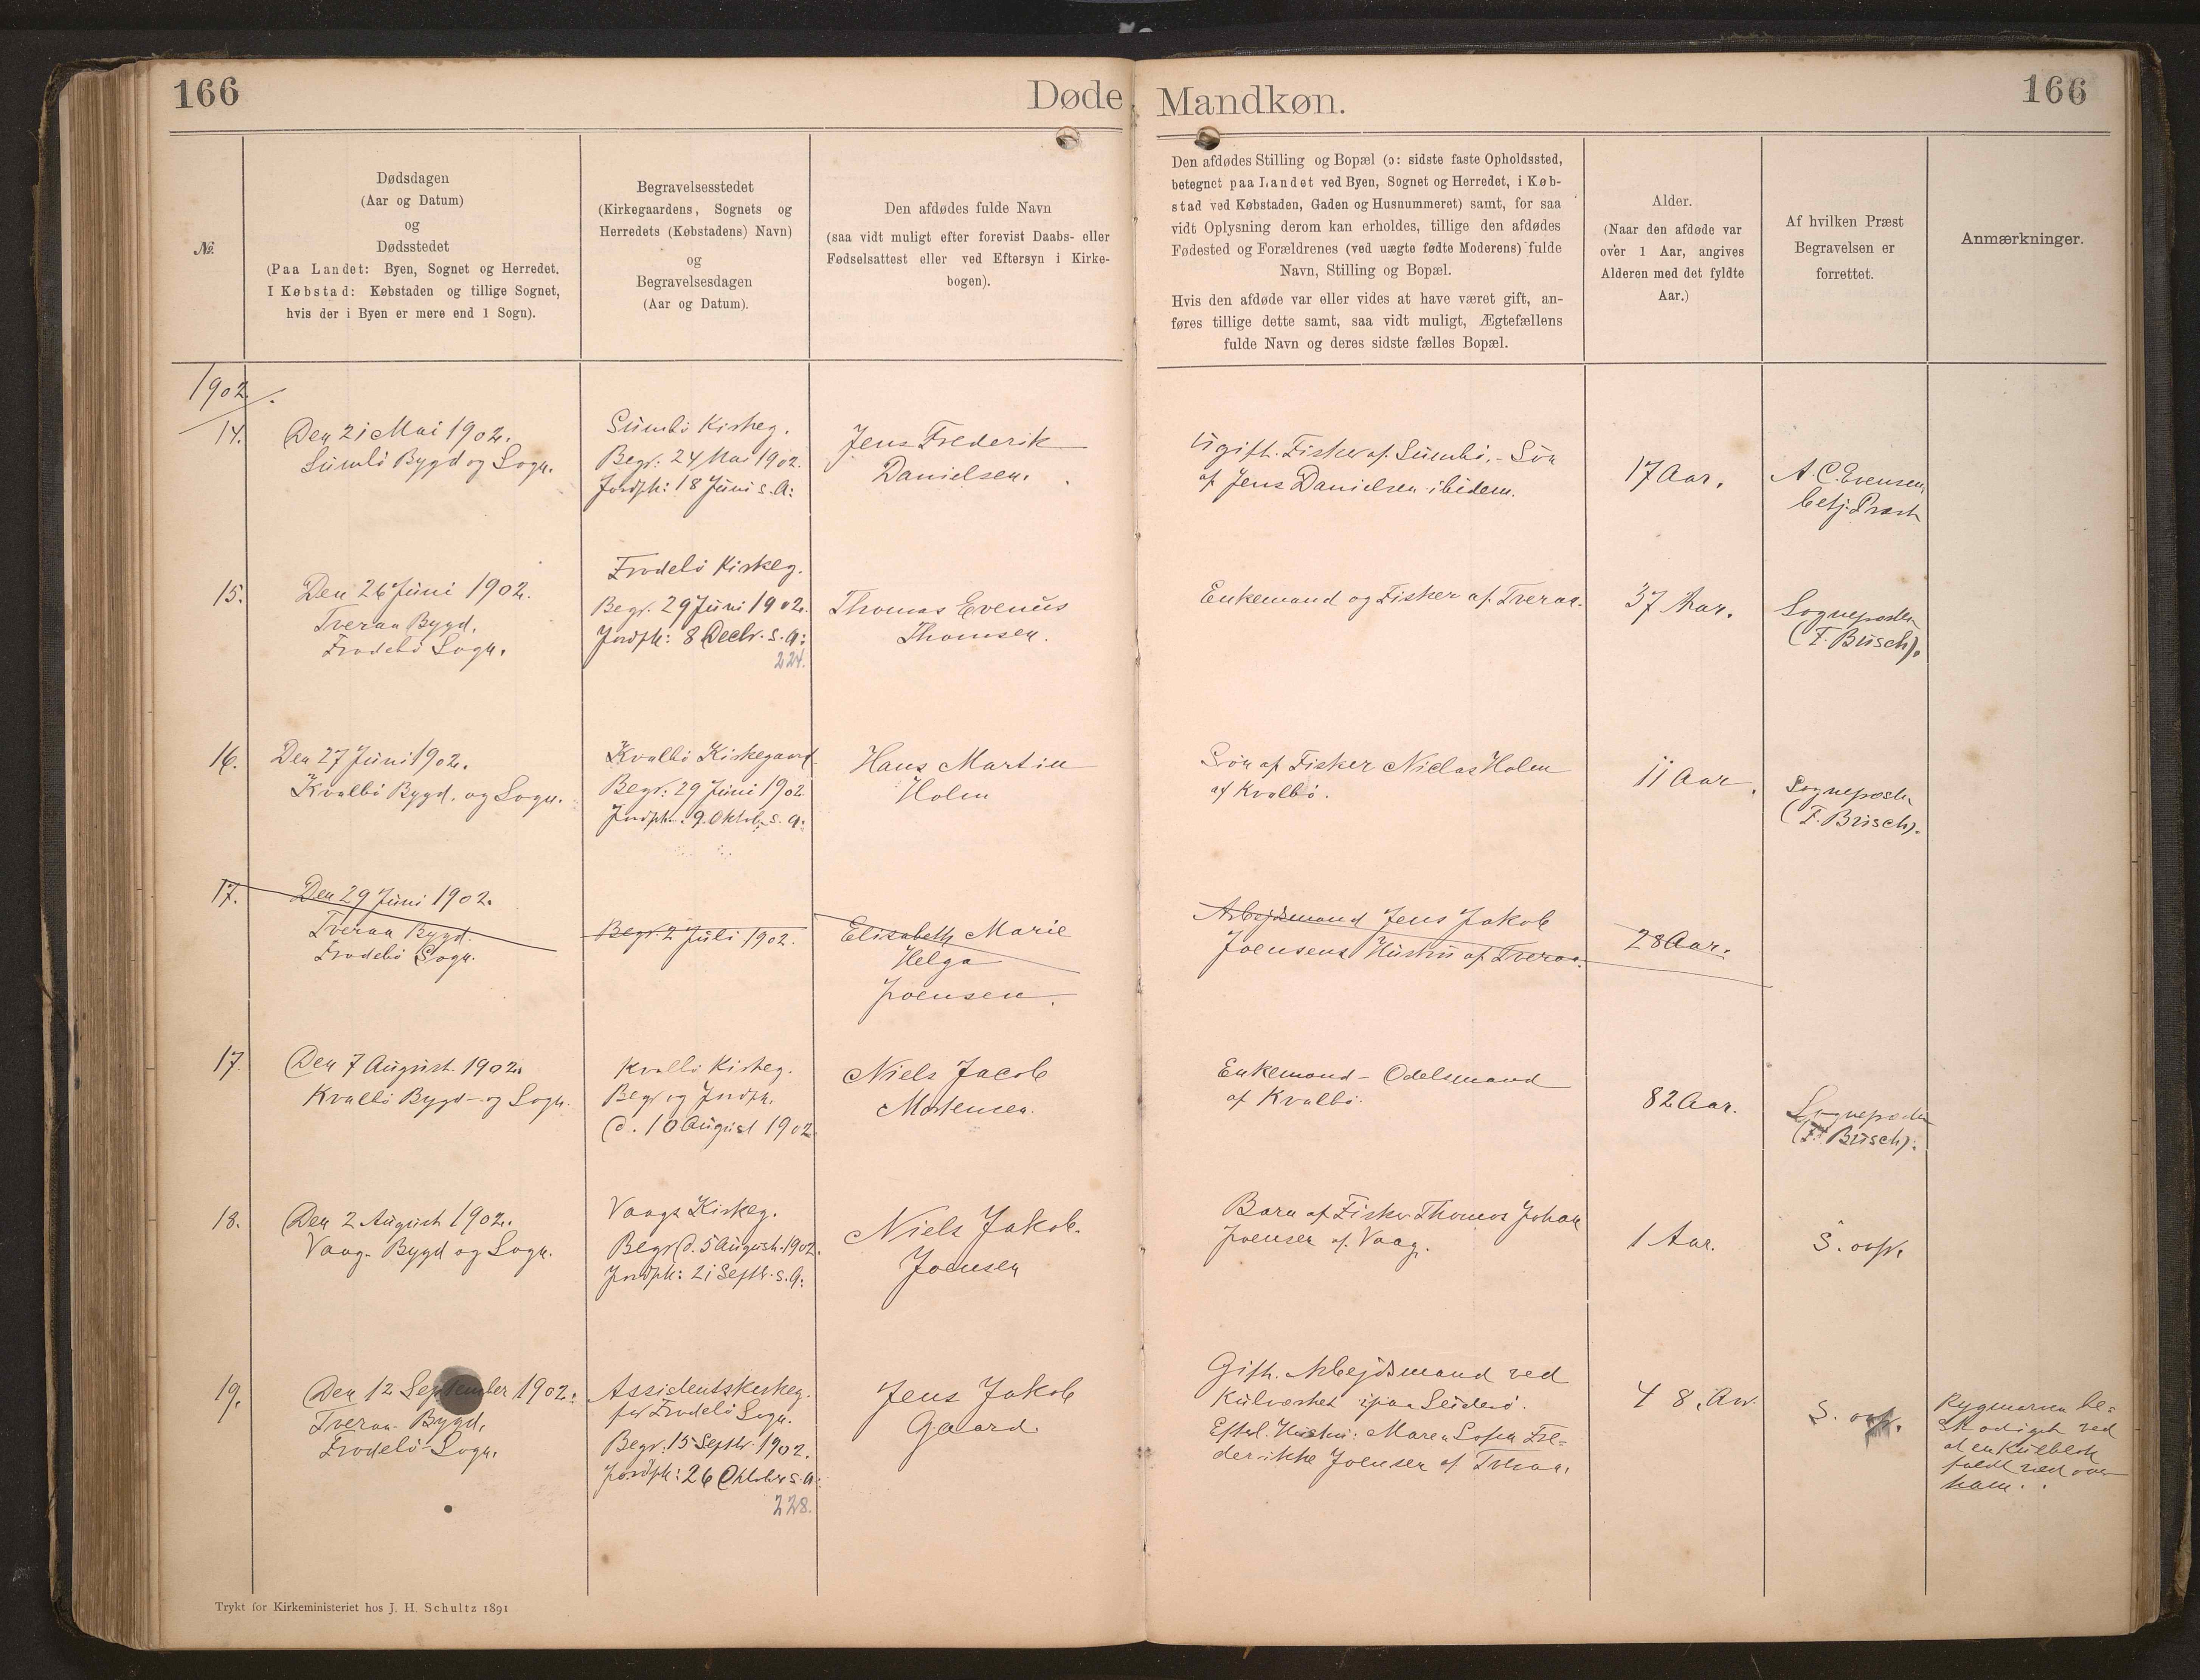 166
Døde
Mandkøn.
166
№.
Dødsdagen
(Aar og Datum)
og
Dødsstedet
(Paa Landet: Byen, Sognet og Herredet.
I Købstad: Købstaden og tillige Sognet,
hvis der i Byen er mere end 1 Sogn).
Begravelsesstedet
(Kirkegaardens, Sognets og
Herredets (Købstadens) Navn)
og
Begravelsesdagen
(Aar og Datum).
Den afdødes fulde Navn
(saa vidt muligt efter forevist Daabs- eller
Fødselsattest eller ved Eftersyn i Kirke-
bogen).
Den afdødes Stilling og Bopæl (ɔ: sidste faste Opholdssted,
betegnet paa Landet ved Byen, Sognet og Herredet, i Køb-
stad ved Købstaden, Gaden og Husnummeret) samt, for saa
vidt Oplysning derom kan erholdes, tillige den afdødes
Fødested og Forældrenes (ved uægte fødte Moderens) fulde
Navn, Stilling og Bopæl.
Hvis den afdøde var eller vides at have været gift, an-
føres tillige dette samt, saa vidt muligt, Ægtefællens
fulde Navn og deres sidste fælles Bopæl.
Alder.
(Naar den afdøde var
over 1 Aar, angives
Alderen med det fyldte
Aar.)
Af hvilken Præst
Begravelsen er
forrettet.
Anmærkninger.
1902.
14.
Den 21 Mai 1902.
Sumbø Bygd og Sogn.
Sumbø Kirkeg.
Begr: 24 Mai 1902.
Jordpk: 18 Juni s. A:
Jens Frederik
Danielsen.
Ugift. Fisker af Sumbø. - Søn
af Jens Danielsen ibidem.
17 Aar.
A. C. Evensen,
betj. Præst
15.
Den 26 Juni 1902.
Tveraa Bygd.
Frodebø Sogn.
Frodebø Kirkeg.
Begr. 29 Juni 1902.
Jordpk: 8 Decbr. s. A:
224.
Thomas Evenus
Thomsen.
Enkemand og Fisker af Tveraa.
37 Aar.
Sognepræsten
(F. Busch).
16.
Den 27 Juni 1902.
Kvalbø Bygd. og Sogn.
Kvalbø Kirkegaard
Begr: 29 Juni 1902
Jordpk: 9. Oktob. s. A:
Hans Martin
Holm
Søn af Fisker Niclas Holm
af Kvalbø.
11 Aar.
Sognepræsten
(F. Busch).
17.
Den 29 Juni 1902.
Tveraa Bygd.
Frodebø Sogn.
Begr. 2 Juli 1902.
Elisabeth Marie
Helga
Joensen.
Arbejdsmand Jens Jakob
Joensens Hustru af Tveraa.
28 Aar.
17.
Den 7 August 1902.
Kvalbø Bygd - og Sogn.
Kvalbø Kirkeg.
Begr. og Jordpk.
d. 10 August 1902
Niels Jacob
Mortensen.
Enkemand - Odelsmand
af Kvalbø.
82 Aar.
Sognepræsten
(F. Busch).
18.
Den 2 August 1902.
Vaag - Bygd og Sogn.
Vaags Kirkeg.
Begr. d. 5 August 1902.
Jordpk: 21 Septb. s. A:
Niels Jakob.
Joensen
Barn af Fisker Thomas Johan
Joensen af Vaag.
1 Aar.
S. ovf.
19.
Den 12 September 1902.
Tveraa - Bygd,
Frodebø - Sogn.
Assistentskirkeg.
for Frodebø Sogn.
Begr: 15 Septbr. 1902.
Jordpk: 26 Oktober s. A:
228.
Jens Jakob
Gaard
Gift. Arbejdsmand ved
Kulværket paa Suderø.
Efterl. Hustru: Maren Sofia Fre-
derikke Joensen af Tveraa.
48. Aar.
S. ovf.
Rygmarven be-
skadiget ved
at en Kulblok
faldt ned over
ham.
Trykt for Kirkeministeriet hos J. H. Schultz 1891